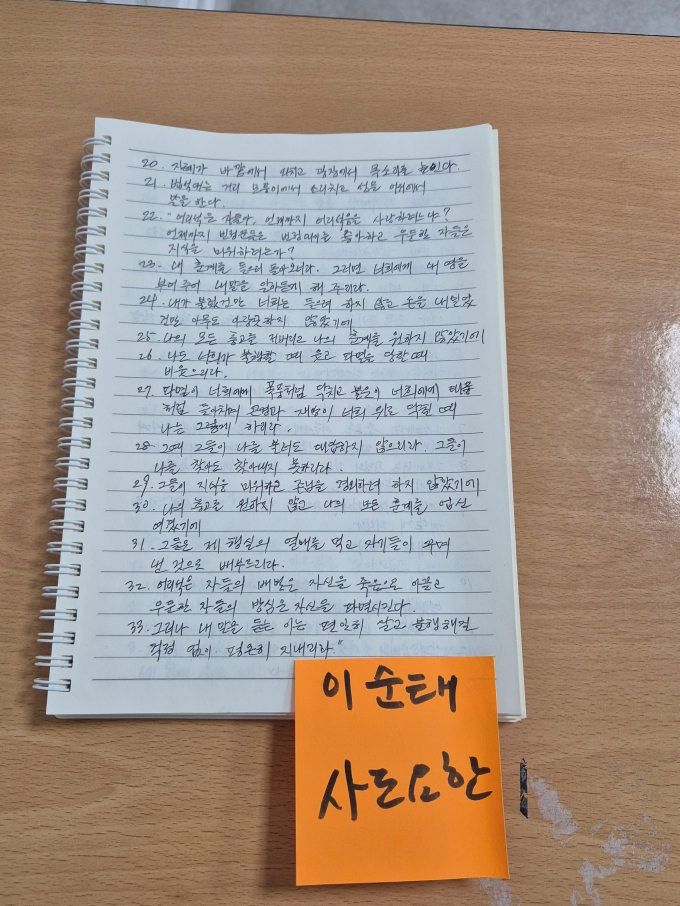 20. 지혜가 바깥에서 외치고 광장에서 목소리를 높인다.
21. 법석대는 거리 모퉁이에서 소리치고 성문 어귀에서
말을 한다.
22. "어리석은 자들아, 언제까지 어리석음을 사랑하려느냐?
언제까지 빈정꾼들은 빈정대기를 좋아하고 우둔한 자들은
지식을 미워하려는가?
23. 내 훈계를 들으러 돌아오너라. 그러면 너희에게 내 영을
부어 주어 내 말을 알아듣게 해 주리라.
24. 내가 불렀건만 너희는 들으려 하지 않고 손을 내밀었
건만 아무도 아랑곳하지 않았기에
25. 나의 모든 충고를 저버리고 나의 훈계를 원하지 않았기에
26. 나도 너희가 불행할 때 웃고 파멸을 당할 때
비웃으리라.
27. 파멸이 너희에게 폭풍처럼 닥치고 불운이 너희에게 태풍
처럼 들이치며 곤경과 재앙이 너희 위로 닥칠 때
나는 그렇게 하리라.
28. 그때 그들이 나를 불러도 대답하지 않으리라. 그들이
나를 찾아도 찾아내지 못하리라.
29. 그들이 지식을 미워하고 주님을 경외하려 하지 않았기에
30. 나의 충고를 원하지 않고 나의 모든 훈계를 업신
여겼기에
31. 그들은 제 행실의 열매를 먹고 자기들이 꾸며
낸 것으로 배부르리라.
32. 어리석은 자들의 배반은 자신을 죽음으로 이끌고
우둔한 자들의 방심은 자신을 파멸시킨다.
33. 그러나 내 말을 듣는 이는 편안히 살고 불행해질
걱정 없이 평온히 지내리라"
이순태
사도요한